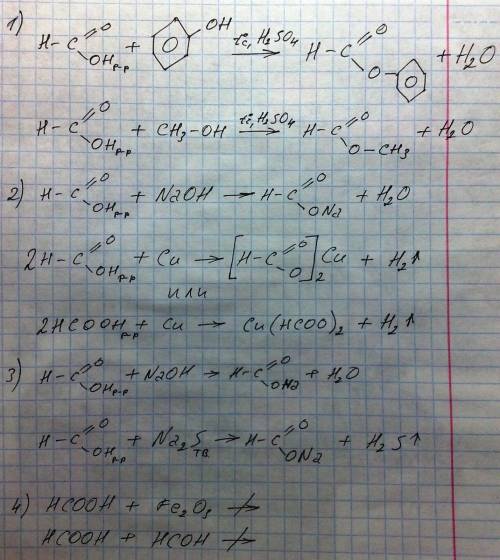 1) H-C(=O)OH р-р + C6H5-OH →(t°C, H2SO4) H-C(=O)O-C6H5 + H2O
H-C(=O)OH р-р + CH3-OH →(t°C, H2SO4) H-C(=O)O-CH3 + H2O
2) H-C(=O)OH р-р + NaOH → H-C(=O)ONa + H2O
2H-C(=O)OH р-р + Cu → [H-C(=O)O]2Cu + H2↑
или
2HCOOH р-р + Cu → Cu(HCOO)2 + H2↑
3) H-C(=O)OH р-р + NaOH → H-C(=O)ONa + H2O
H-C(=O)OH р-р + Na2S тв → H-C(=O)ONa + H2S↑
4) HCOOH + Fe2O3 ↛
HCOOH + HCOH ↛